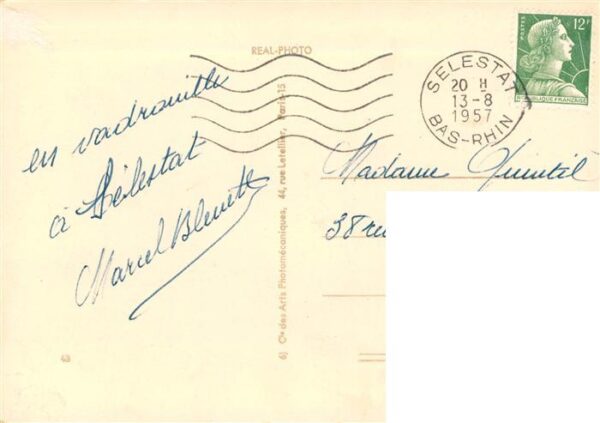 REAL-PHOTO
POSTES
12F
REPUBLIQUE FRANÇAISE
SELESTAT
20 H
13-8
1957
BAS-RHIN
en vadrouille
à Sélestat
Marcel
Madame Quintil
38 ru
6) Cie des Arts Photomécaniques, 44, rue Letellier, Paris-15